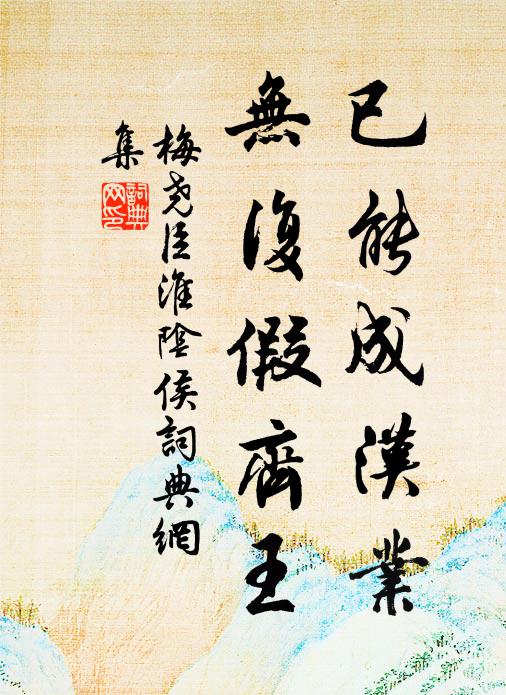 已能成漢業
無復假齊王
梅堯臣淮陰侯詞典網
集
詞典網印